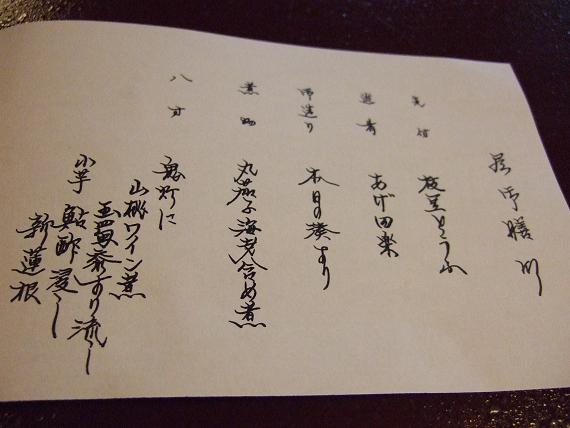 昼御膳 川
先付 枝豆とうふ
進肴 あげ田楽
御造り 本日の湊より
煮物 丸茄子海老含め煮
八寸 鬼灯に
山桃ワイン煮
玉蜀黍すり流し
小芋 鮎酢浸し
新蓮根